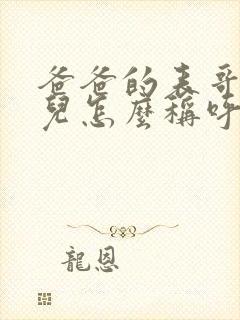 爸爸的表哥
兒怎麼稱呼
龍恩